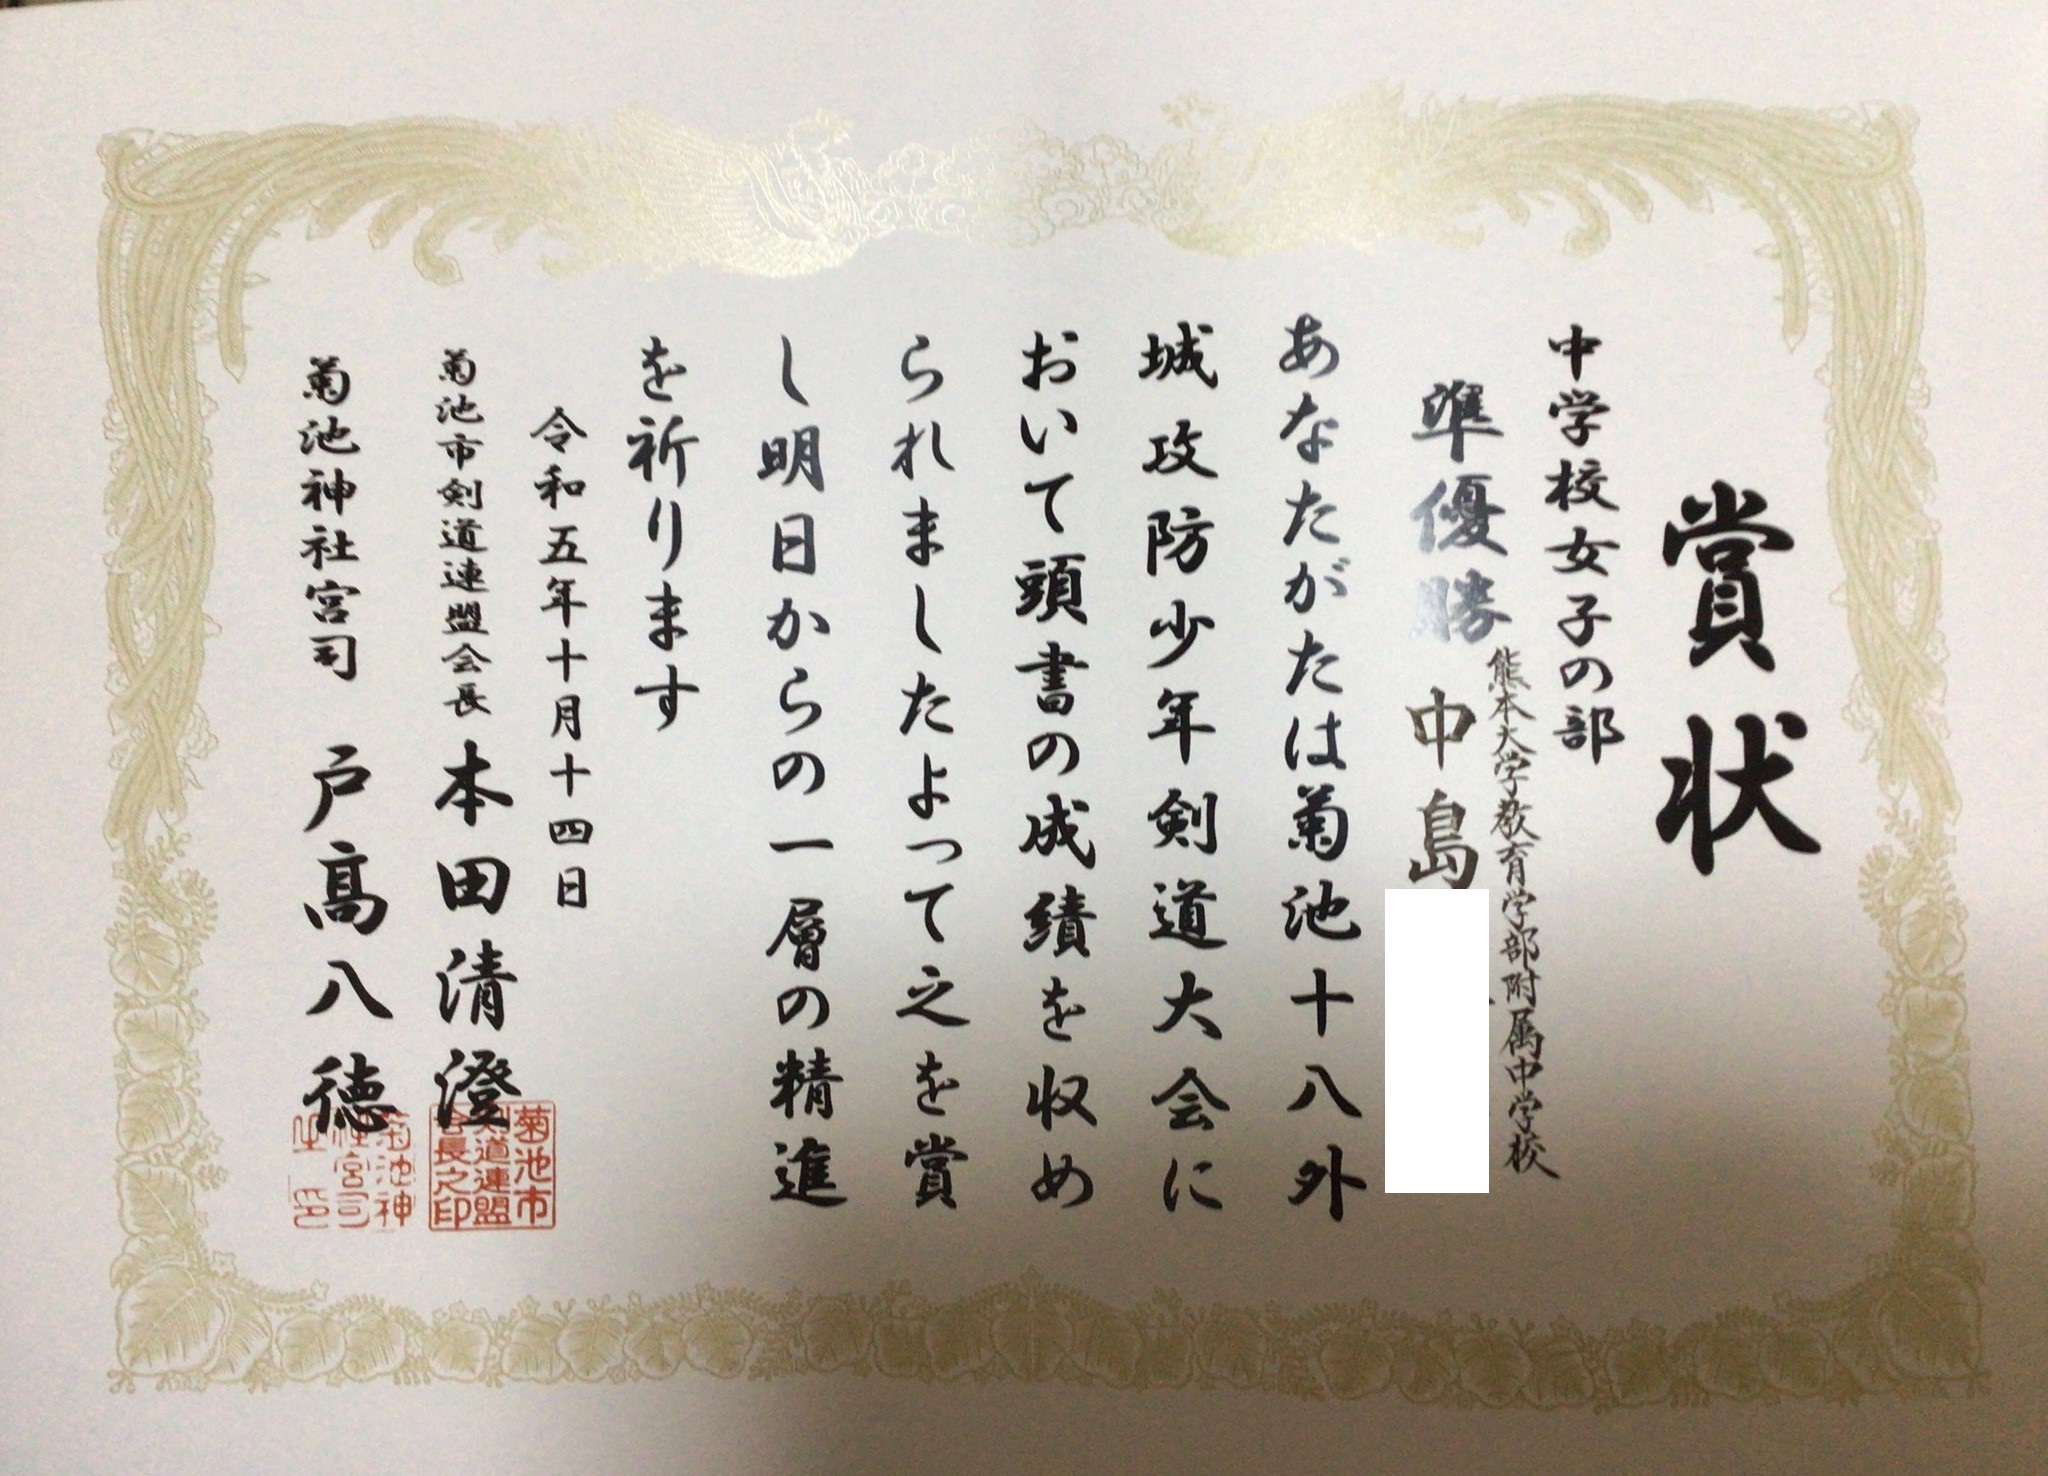 賞状
中学校女子の部
熊本大学教育学部附属中学校
準優勝 中島
あなたがたは菊池十八外
城攻防少年剣道大会に
おいて頭書の成績を収め
られましたよって之を賞
し明日からの一層の精進
を祈ります
令和五年十月十四日
菊池市剣道連盟会長 本田清澄
菊池市剣道連盟会長之印
菊池神社宮司 戸髙八徳